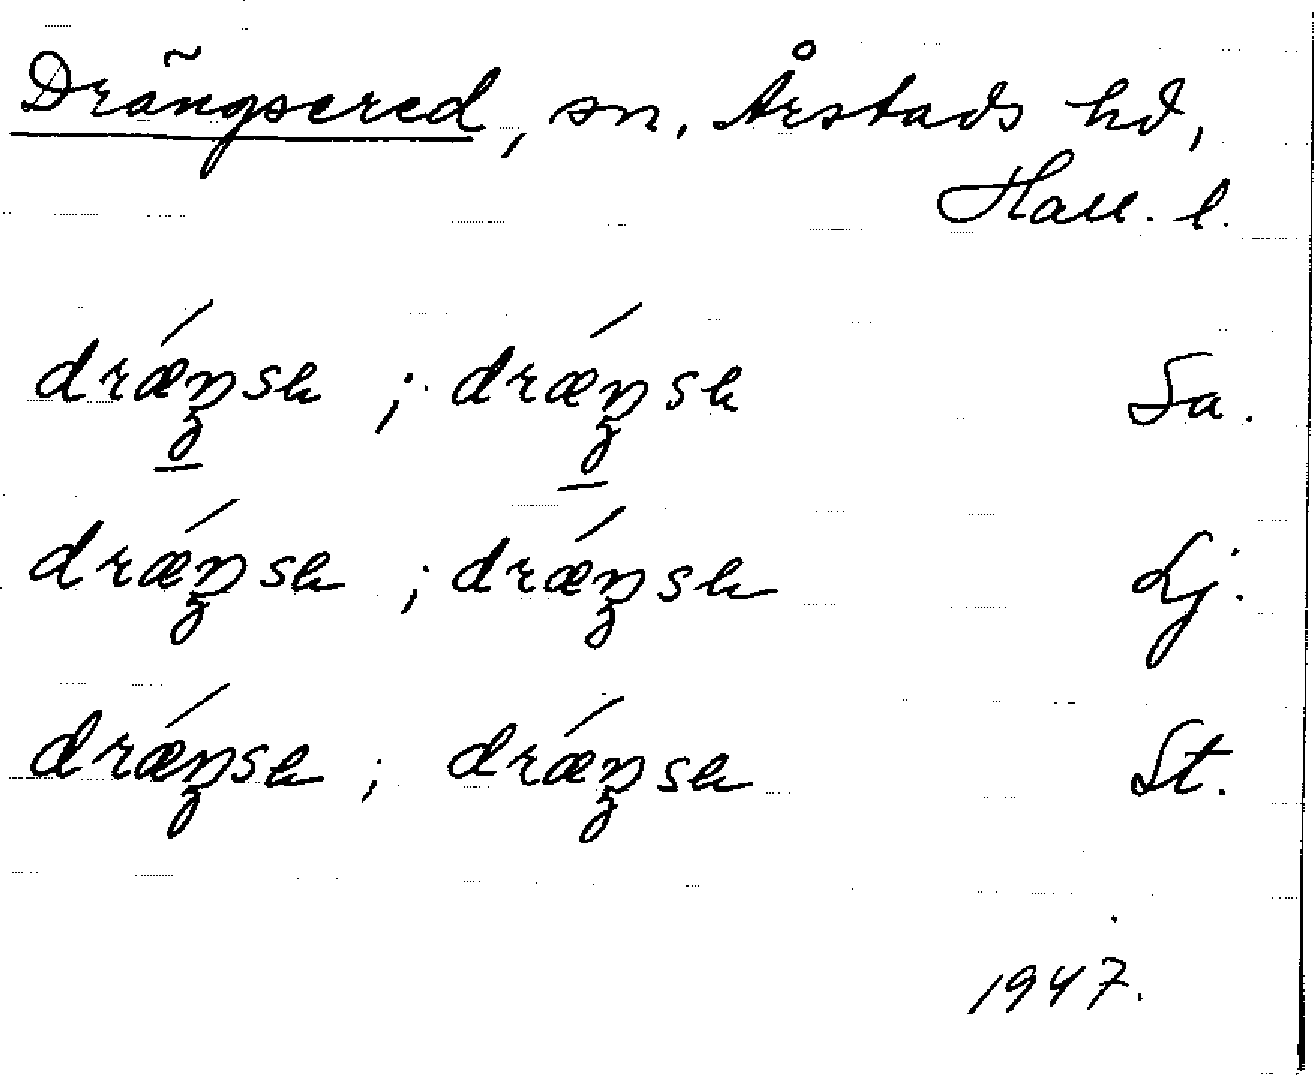 Drängsered, sn, Årstads hd,
Hall. l.
drǽŋsh ; drǽŋsh Sa.
drǽŋsh ; drǽŋsh Lj.
drǽŋsh ; drǽŋsh St.
1947.